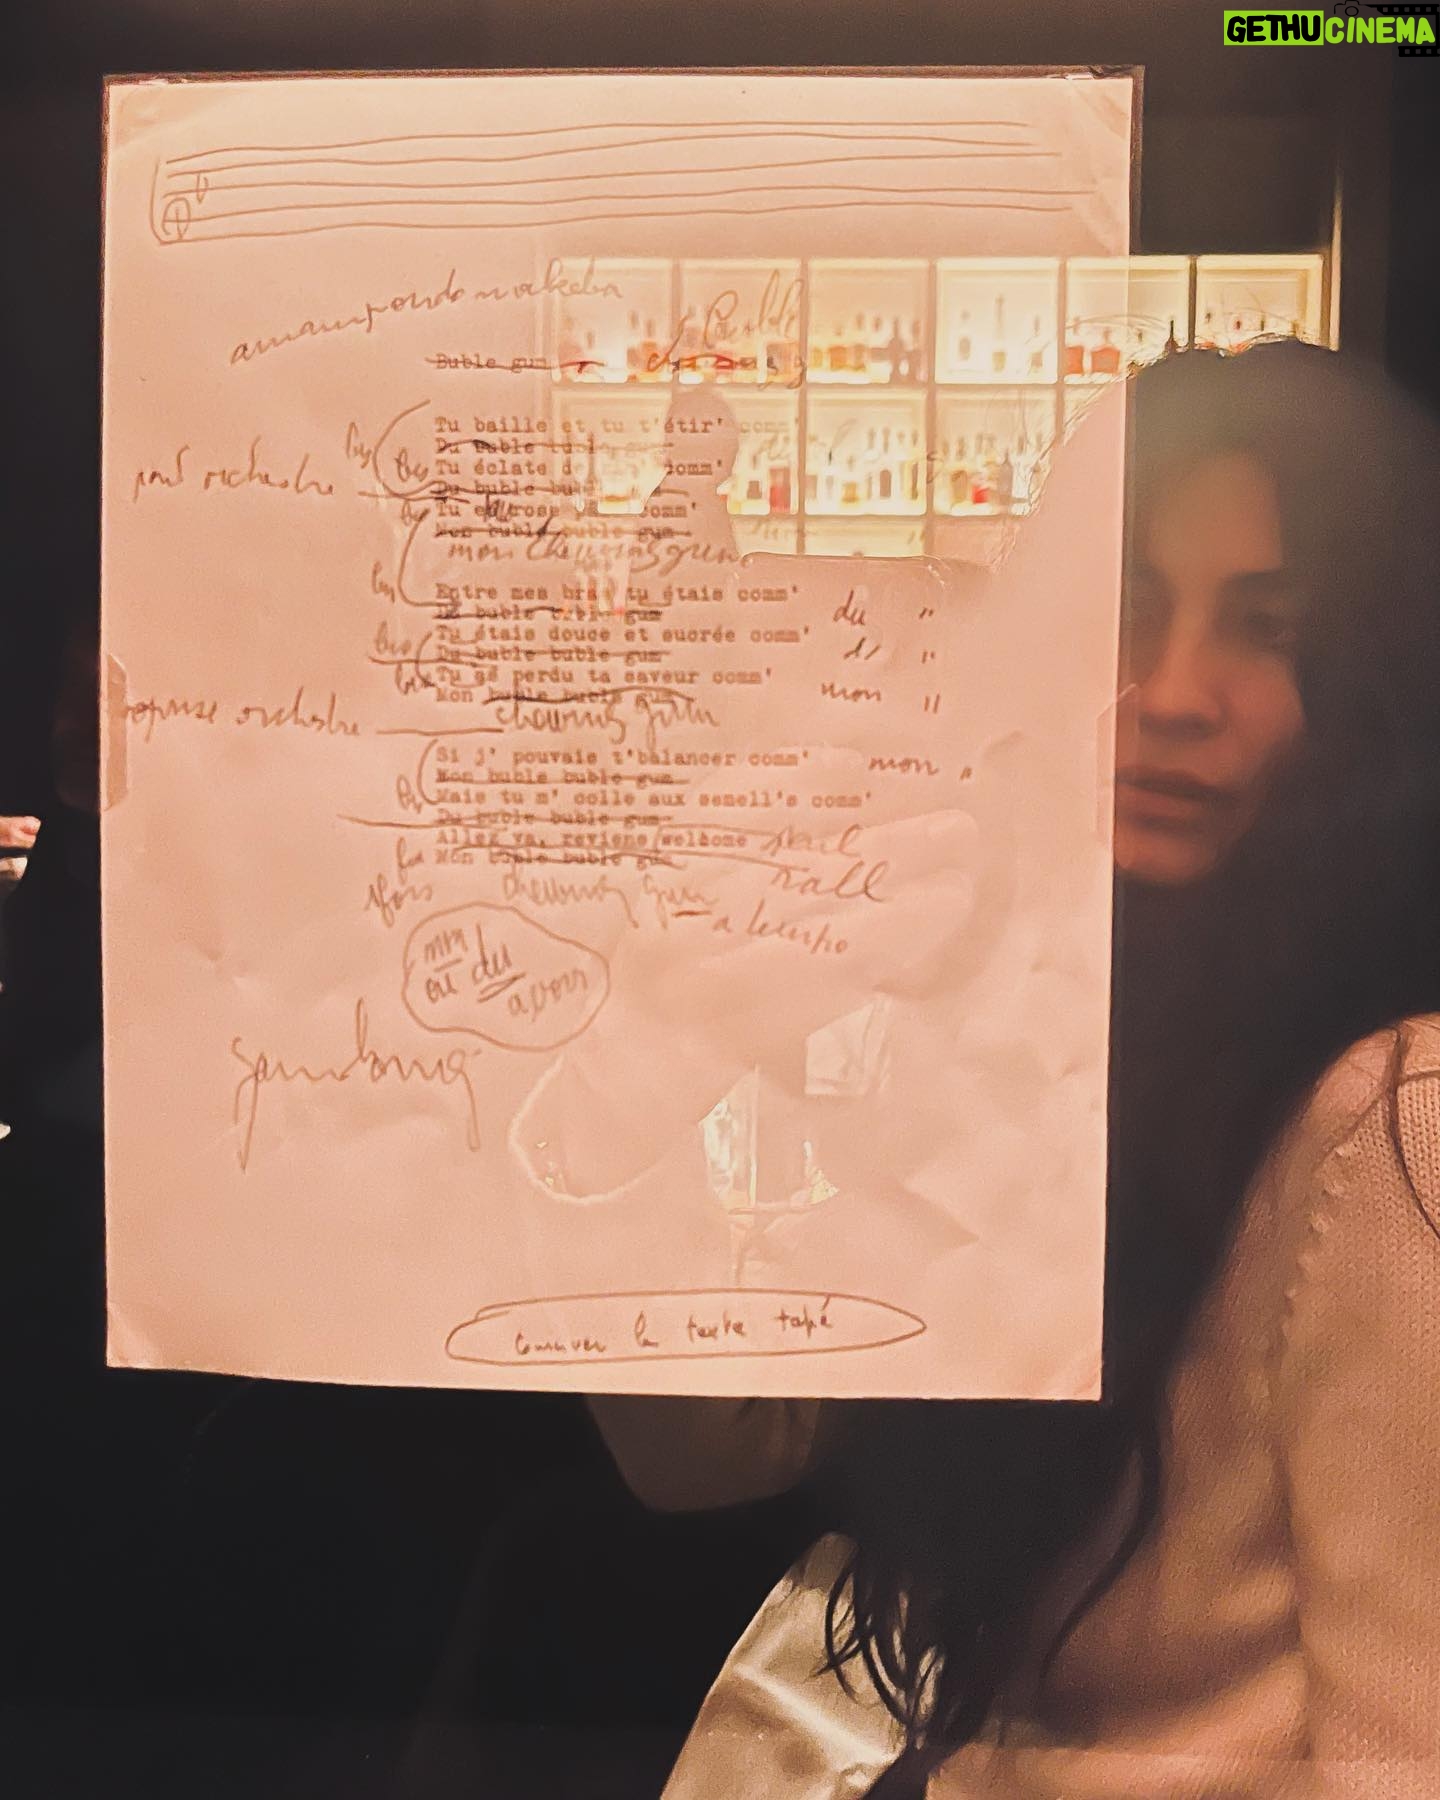 GETHUCINEMA
Buble gum
Tu baille et tu t'étir' comm'
Du buble buble gum
Tu éclate de comm'
Du buble
Tu es rose comm'
Mon buble buble gum
mon chewing gum
Entre mes bras tu étais comm' du "
Du buble buble gum
Tu étais douce et sucrée comm' "
Du buble buble gum
Tu as perdu ta saveur comm' mon "
Mon buble buble gum
reprise orchestre chewing gum
Si j' pouvais t'balancer comm' mon "
Mon buble buble gum
Mais tu m' colle aux semell's comm'
Du buble buble gum
Allez va, reviens welcome
Mon buble buble gum rall
chewing gum
a tempo
ou du
a voir
texte tapé